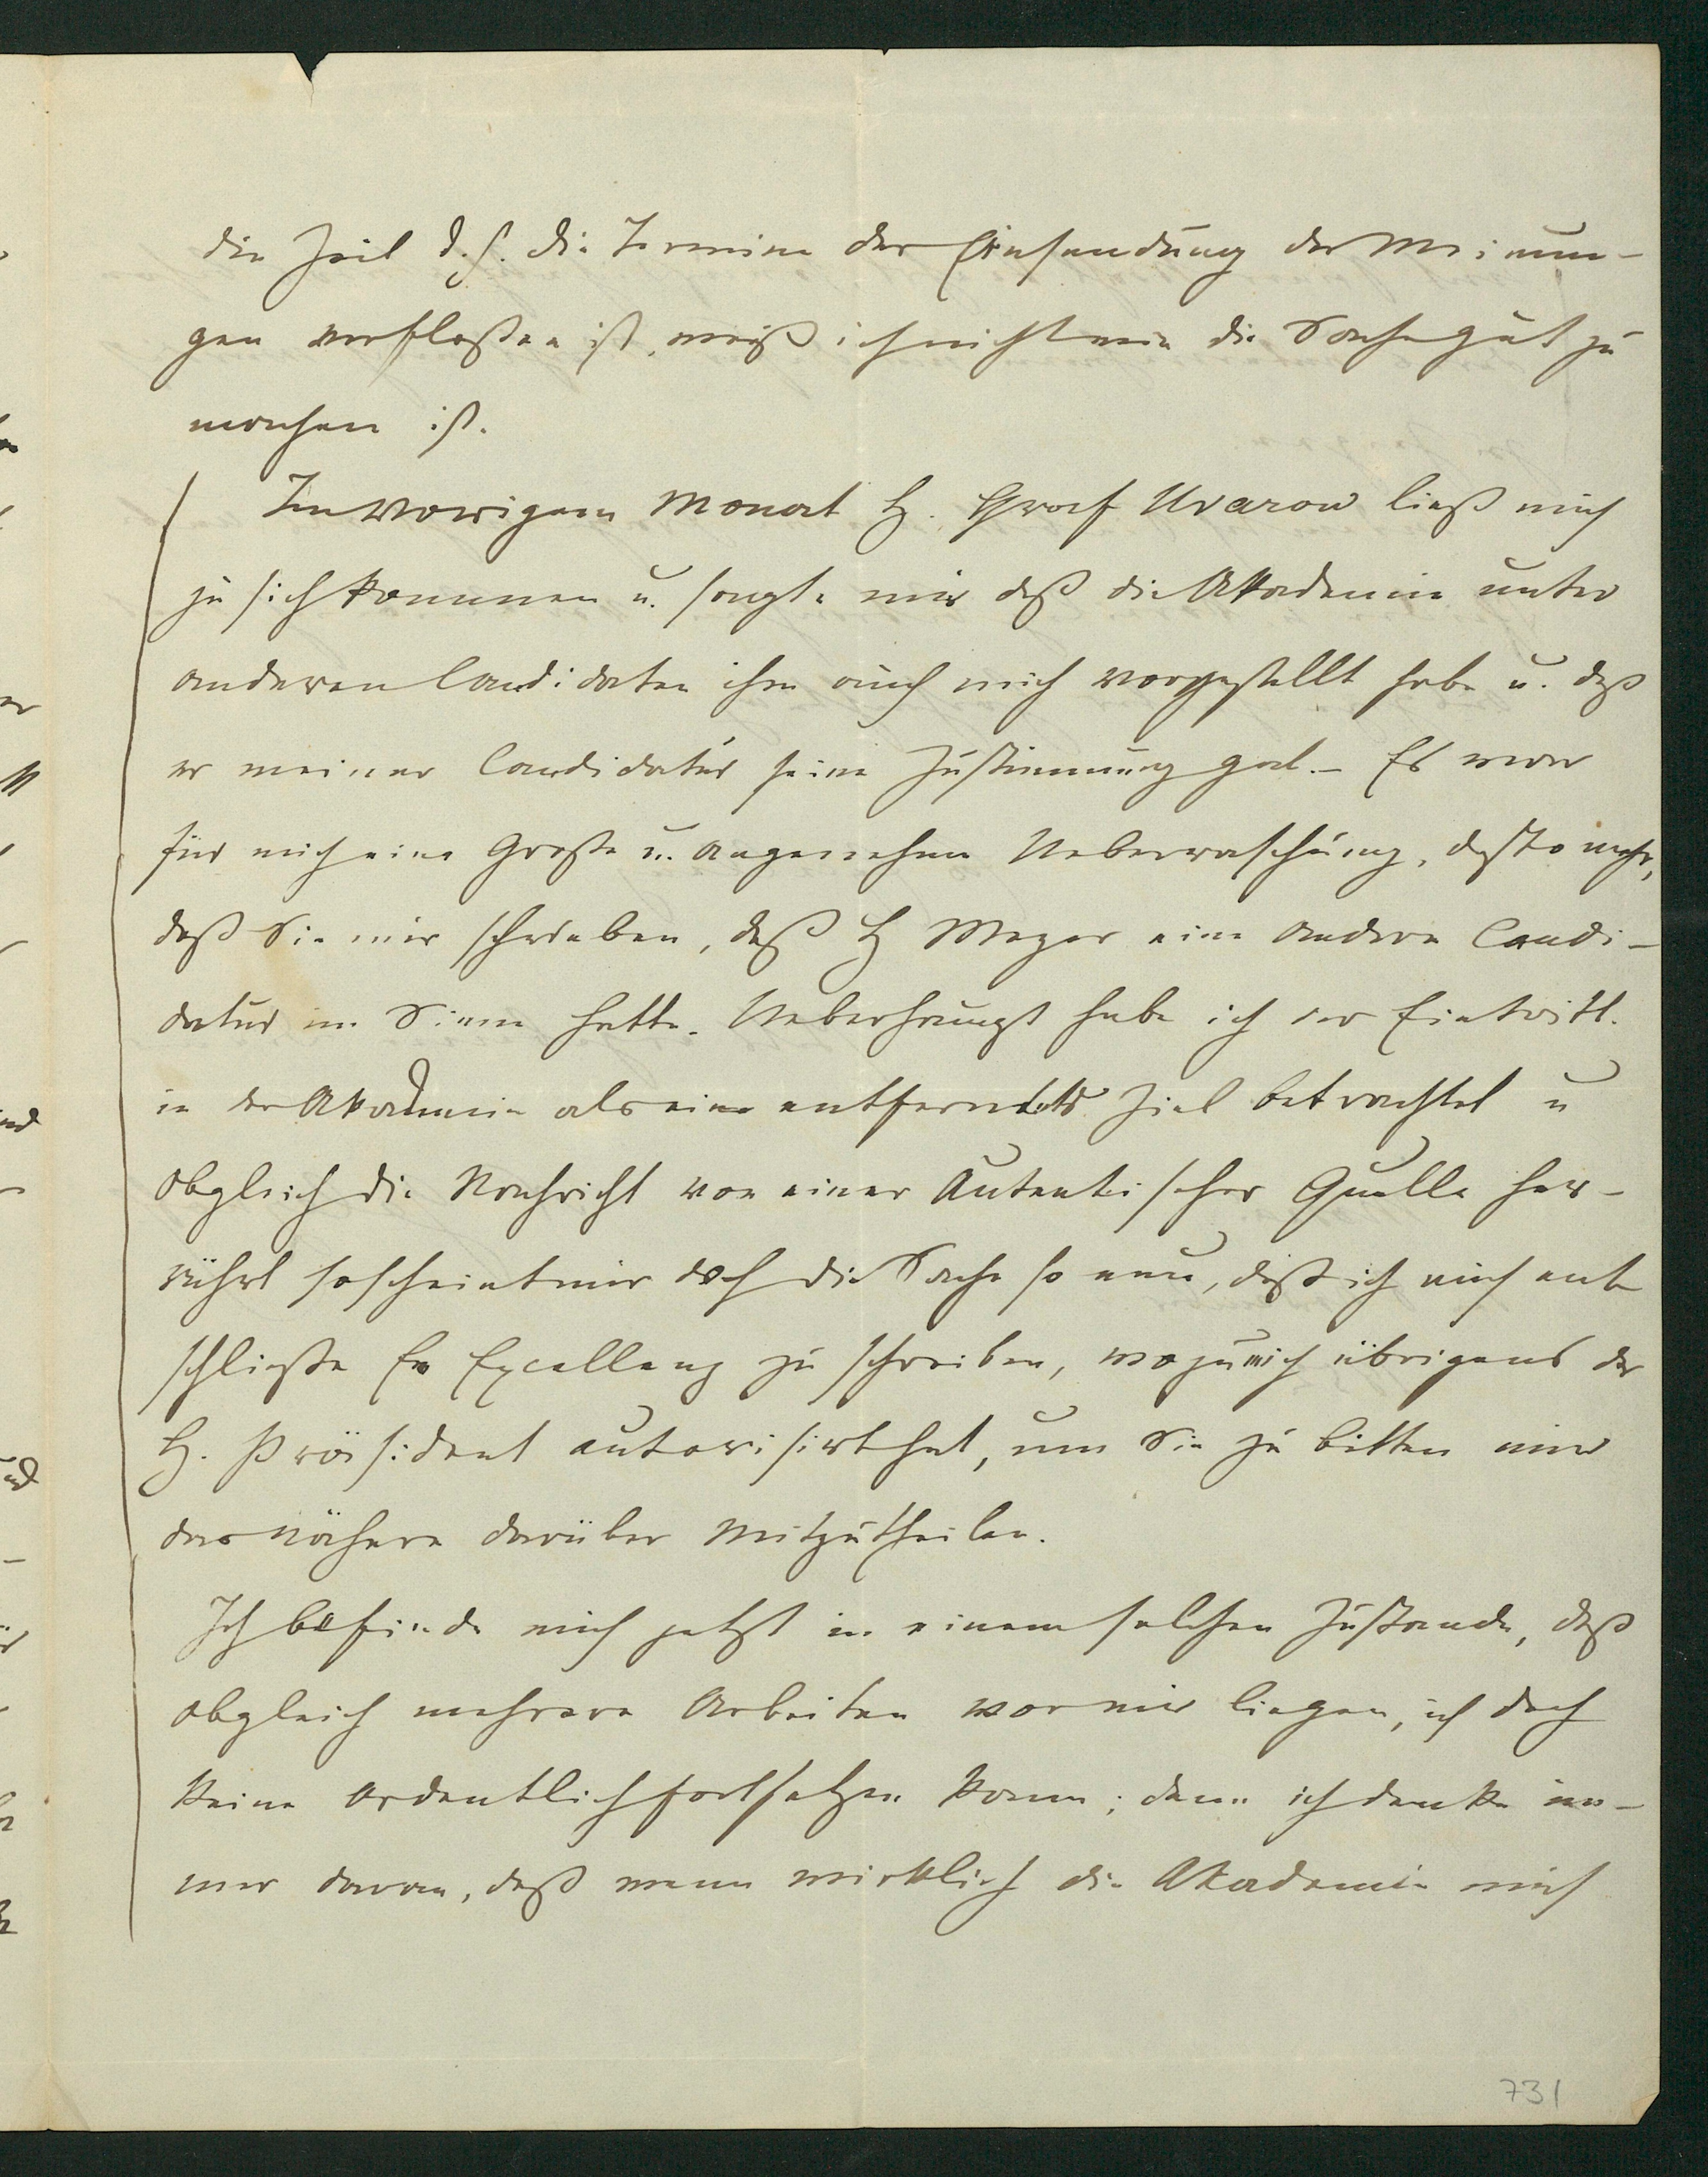 die Zeit d. h. die Termine der Einsendung der Meinun-
gen verfloßen ist, weiß ich nicht wie die Sache gut zu
machen ist.
Im Vorigem Monat H. Graf Uvarow ließ mich
zu sich kommen u. sagte mir daß die Akademie unter
anderen Candidaten ihm auch mich vorgestellt habe u. daß
er meiner Candidatur seine Zustimmung gab. – Es war
für mich eine Große u. Angenehme Ueberraschung, desto mehr,
daß Sie mir schrieben, daß H Meyer eine Andere Candi-
datur im Sinne hatte. Ueberhaupt habe ich der Eintritt
in der Akademie als eine entferntets Ziel betrachtet u
obgleich die Nachricht von einer Autentischer Quelle her-
rührt so scheint mir doch die Sache so neu, daß ich mich ent
schließe Ew Excellenz zu schreiben, wozu mich übrigens der
H. Präsident autorisirt hat, um Sie zu bitten mir
das Nähere darüber Mitzutheilen.
Ich befinde mich jetzt in einem solchen Zustande, daß
obgleich mehrere Arbeiten vor mir liegen, ich doch
keine Ordentlich fortsetzen kann; denn ich denke im-
mer daran, daß wenn wirklich die Akademie mich
731